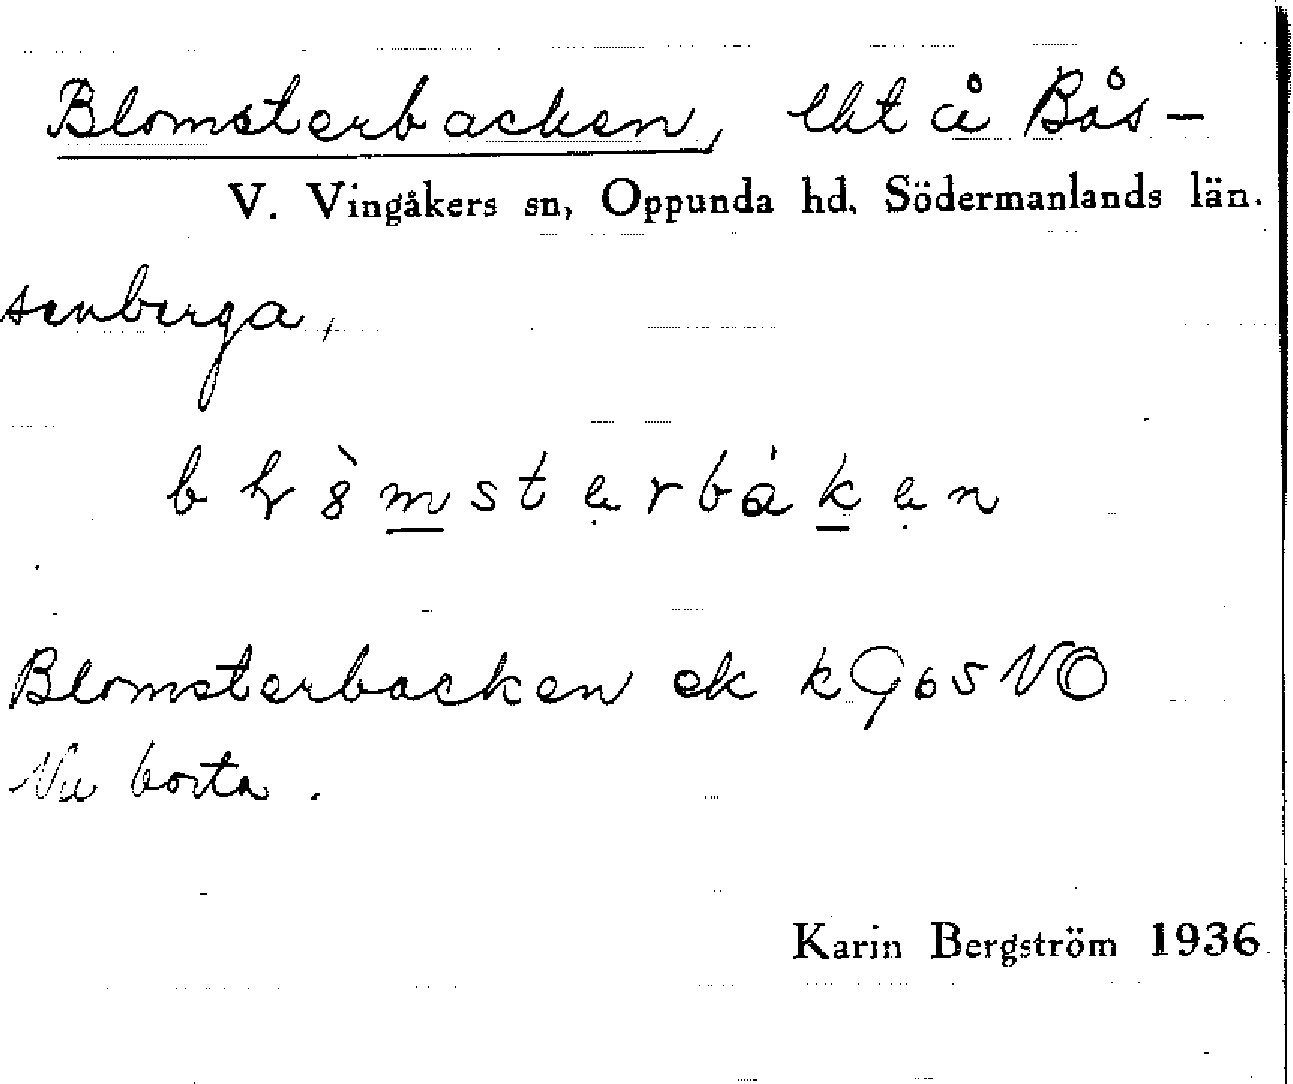 Blomsterbacken, lht å Bås-
V. Vingåkers sn, Oppunda hd. Södermanlands län.
senberga,
Blomsterbacken ek k G65 NO
Nu borta.
Karin Bergström 1936